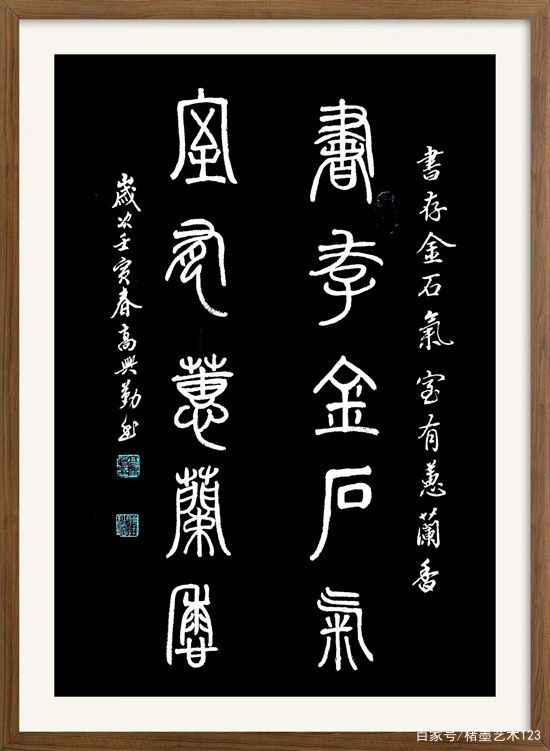 書存金石氣室有蕙蘭香
書存金石氣
室有蕙蘭香
歲次壬寅春高興勤書
百家号/楮墨艺术123